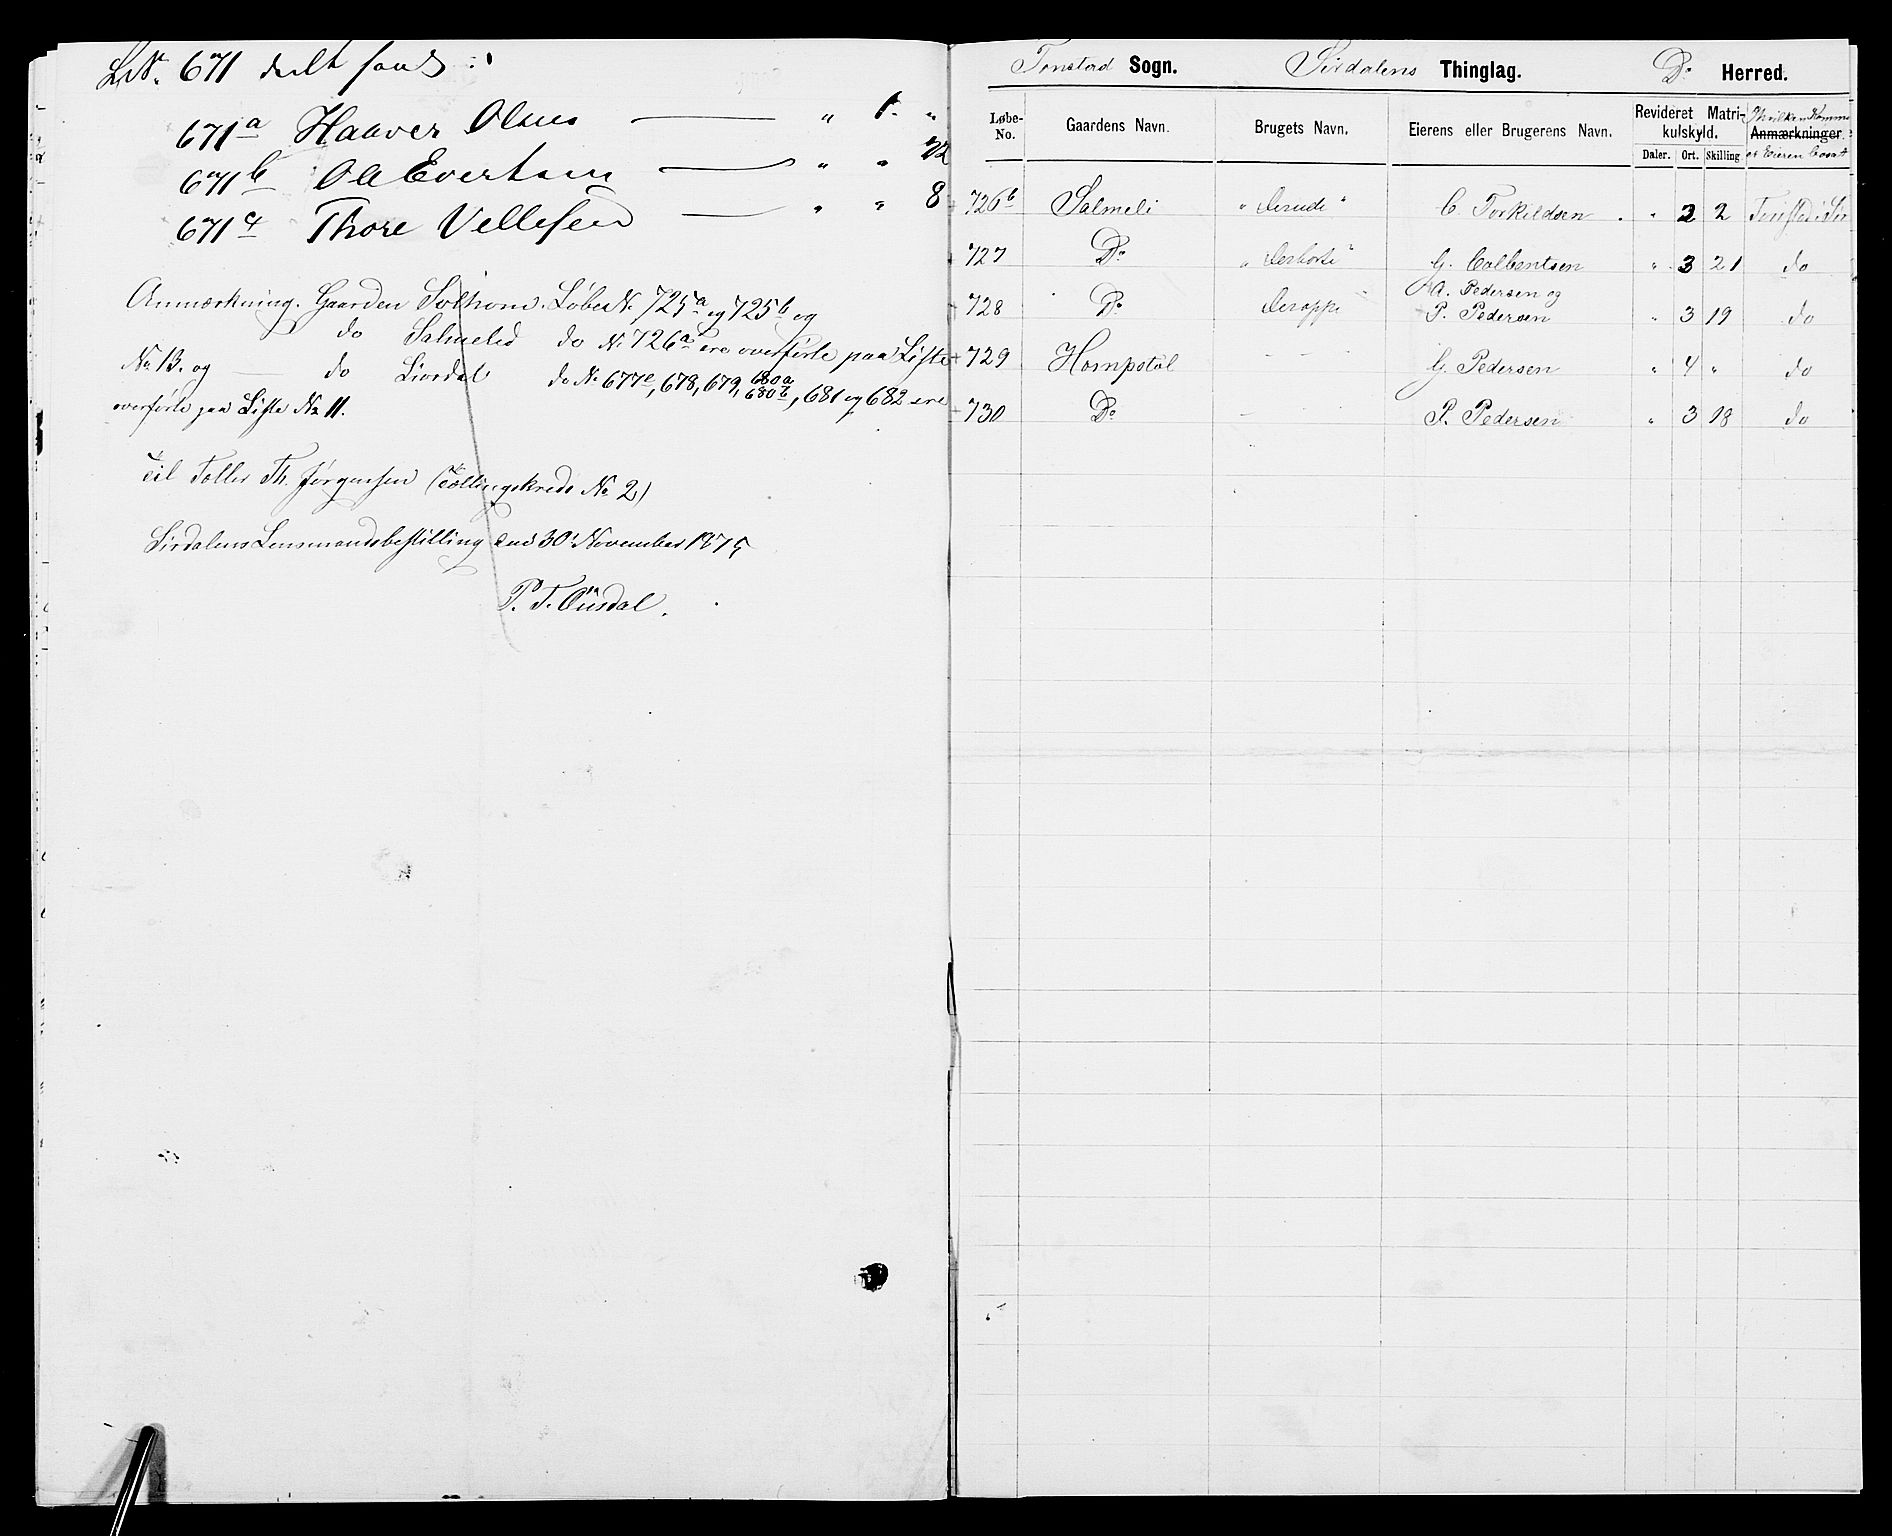 LNo. 671 deelt saaes :
671a Haaver Olsen — " 1. "
671b Ole Evertsen — " " 22
671c Thore Vellesen — " " 8
Anmærkning. Gaarden Solhom. Løbe No. 725a og 725b og
do Salmeled do No 726a ere overførte paa Liste
No. 13. og — do Liordal do No. 677e, 678, 679, 680a 680b, 681 og 682 ere
overførte paa Liste No. 11.
Til Tæller Th. Jørgensen (Tællingskreds No. 2)
Sirdalens Lensmandsbestilling den 30' November 1875
P. T. Ousdal.
Tonstad Sogn. Sirdalens Thinglag. Do Herred.
Løbe-No. Gaardens Navn. Brugets Navn. Eierens eller Brugerens Navn. Revideret Matrikulskyld. Daler. Ort. Skilling Anmærkninger. I hvilken Komm: er Eieren bosat
726b Salmeli " " C. Torkildsen . " 2 2 Tonstad i Sir
727 Do " " G. " 3 21 do
728 Do A. Pedersen og
P. Pedersen " 3 19 do
729 Hompstøl - - G. Pedersen " 4 " do
730 Do - - P. Pedersen " 3 18 do